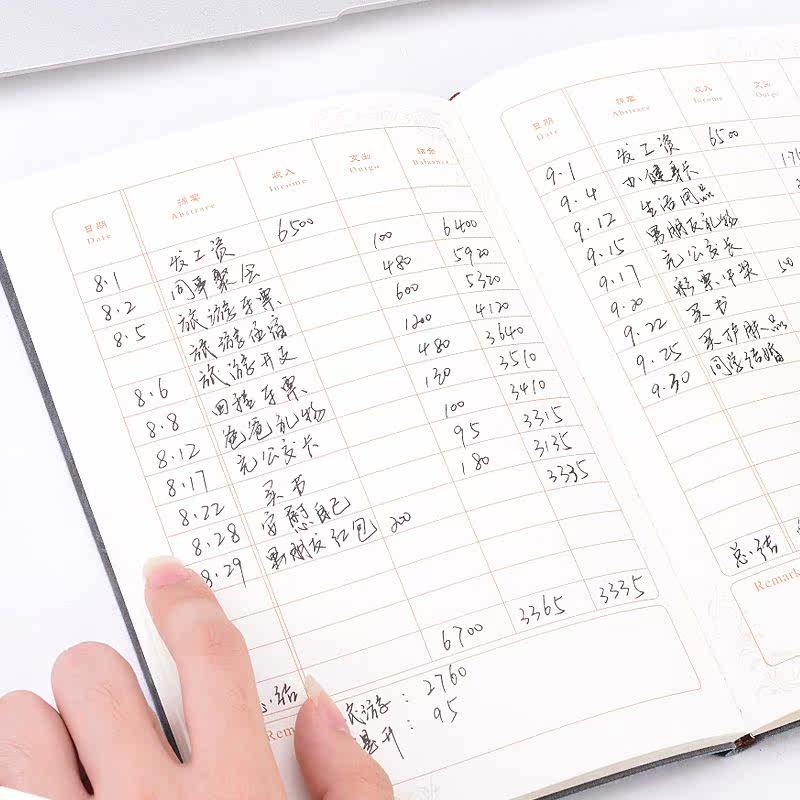 日期 Date 摘要 Abstrace 收入 Income 支出 Outgo 结余 Balance
8.1 发工资 6500
8.2 同事聚会 100 6400
8.5 旅游车票 480 5920
旅游住宿 600 5320
旅游开支 1200 4120
8.6 回程车票 480 3640
8.8 爸爸礼物 130 3510
8.12 充公交卡 100 3410
8.17 买书 95 3315
8.22 安慰自己 180 3135
8.28 男朋友红包 200 3335
8.29
结 6700 3365 3335
游: 2760
升: 95
日期 Date 摘要 Abstrace 收入 Income 支出 Outgo
9.1 发工资 6500
9.4 办健身卡
9.12 生活用品
9.15 男朋友礼物
9.17 充公交卡
9.20 彩票中奖
9.22 买书
9.25 买护肤品
9.30 同学结婚
总结
Remark